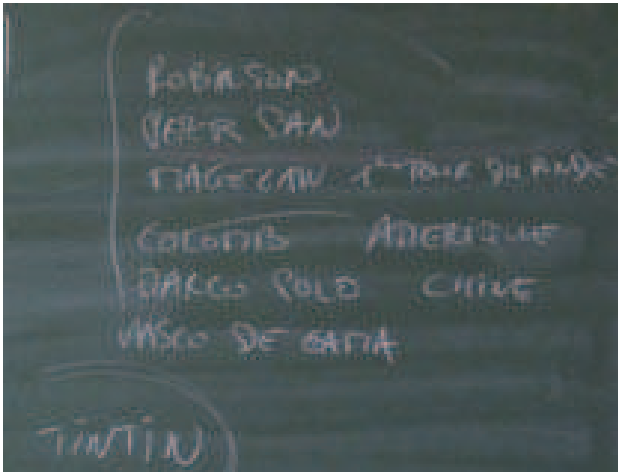 ROBINSON
PETER PAN
MAGELLAN 1er TOUR DU MONDE
COLOMB AMERIQUE
MARCO POLO CHINE
VASCO DE GAMA
TINTIN